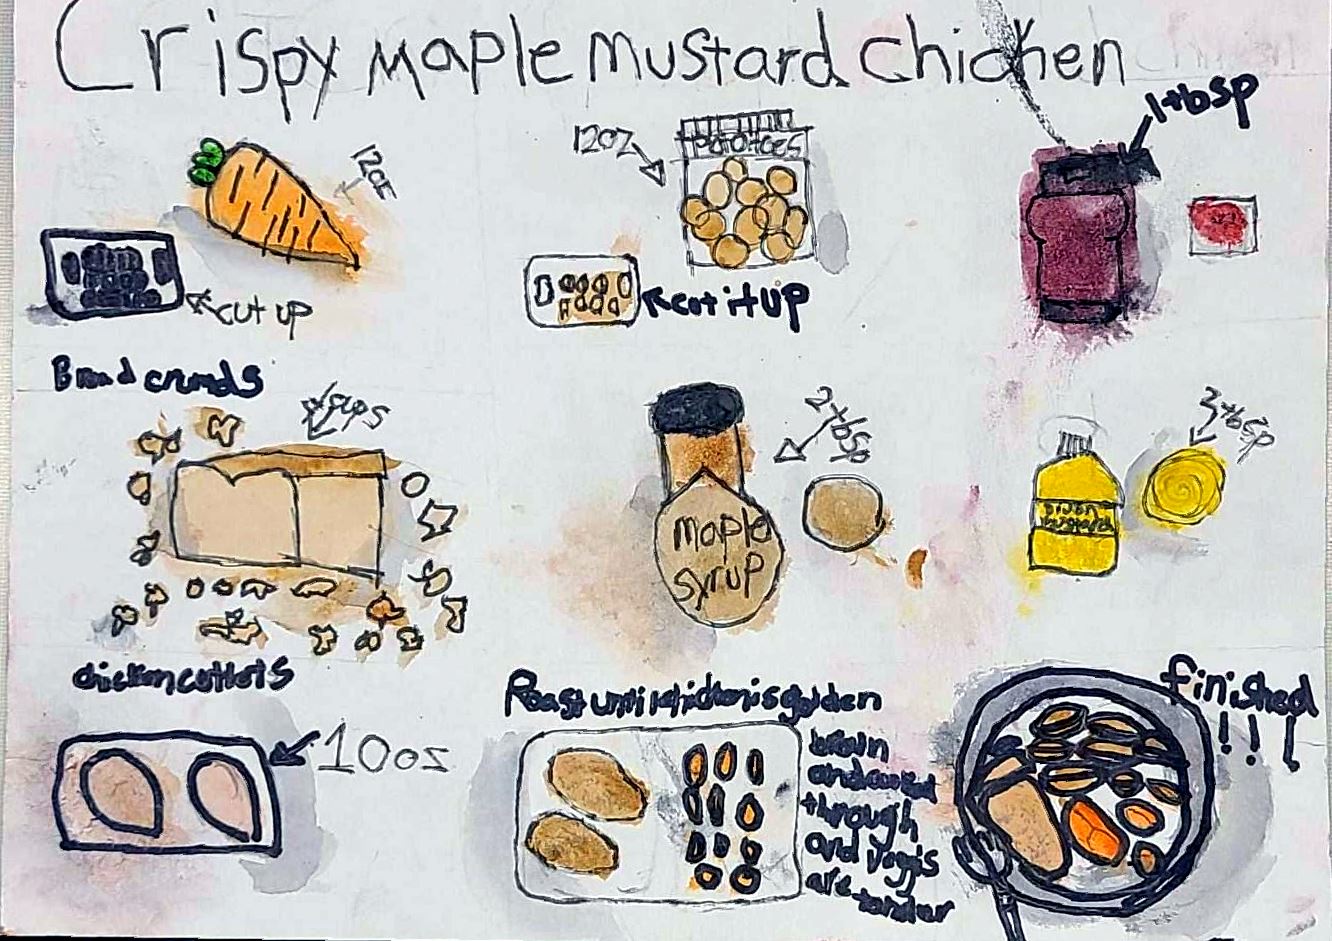 Crispy maple mustard chicken
1 tbsp
12oz
12oz
potatoes
cut up
cut it up
Bread crumds
cups
2 tbsp
3 tbsp
maple
syrup
Dijon
mustard
chicken cuttets
10oz
Roast until chicken is golden
brown
and cooked
through
and veggis
are tender
finished
!!!